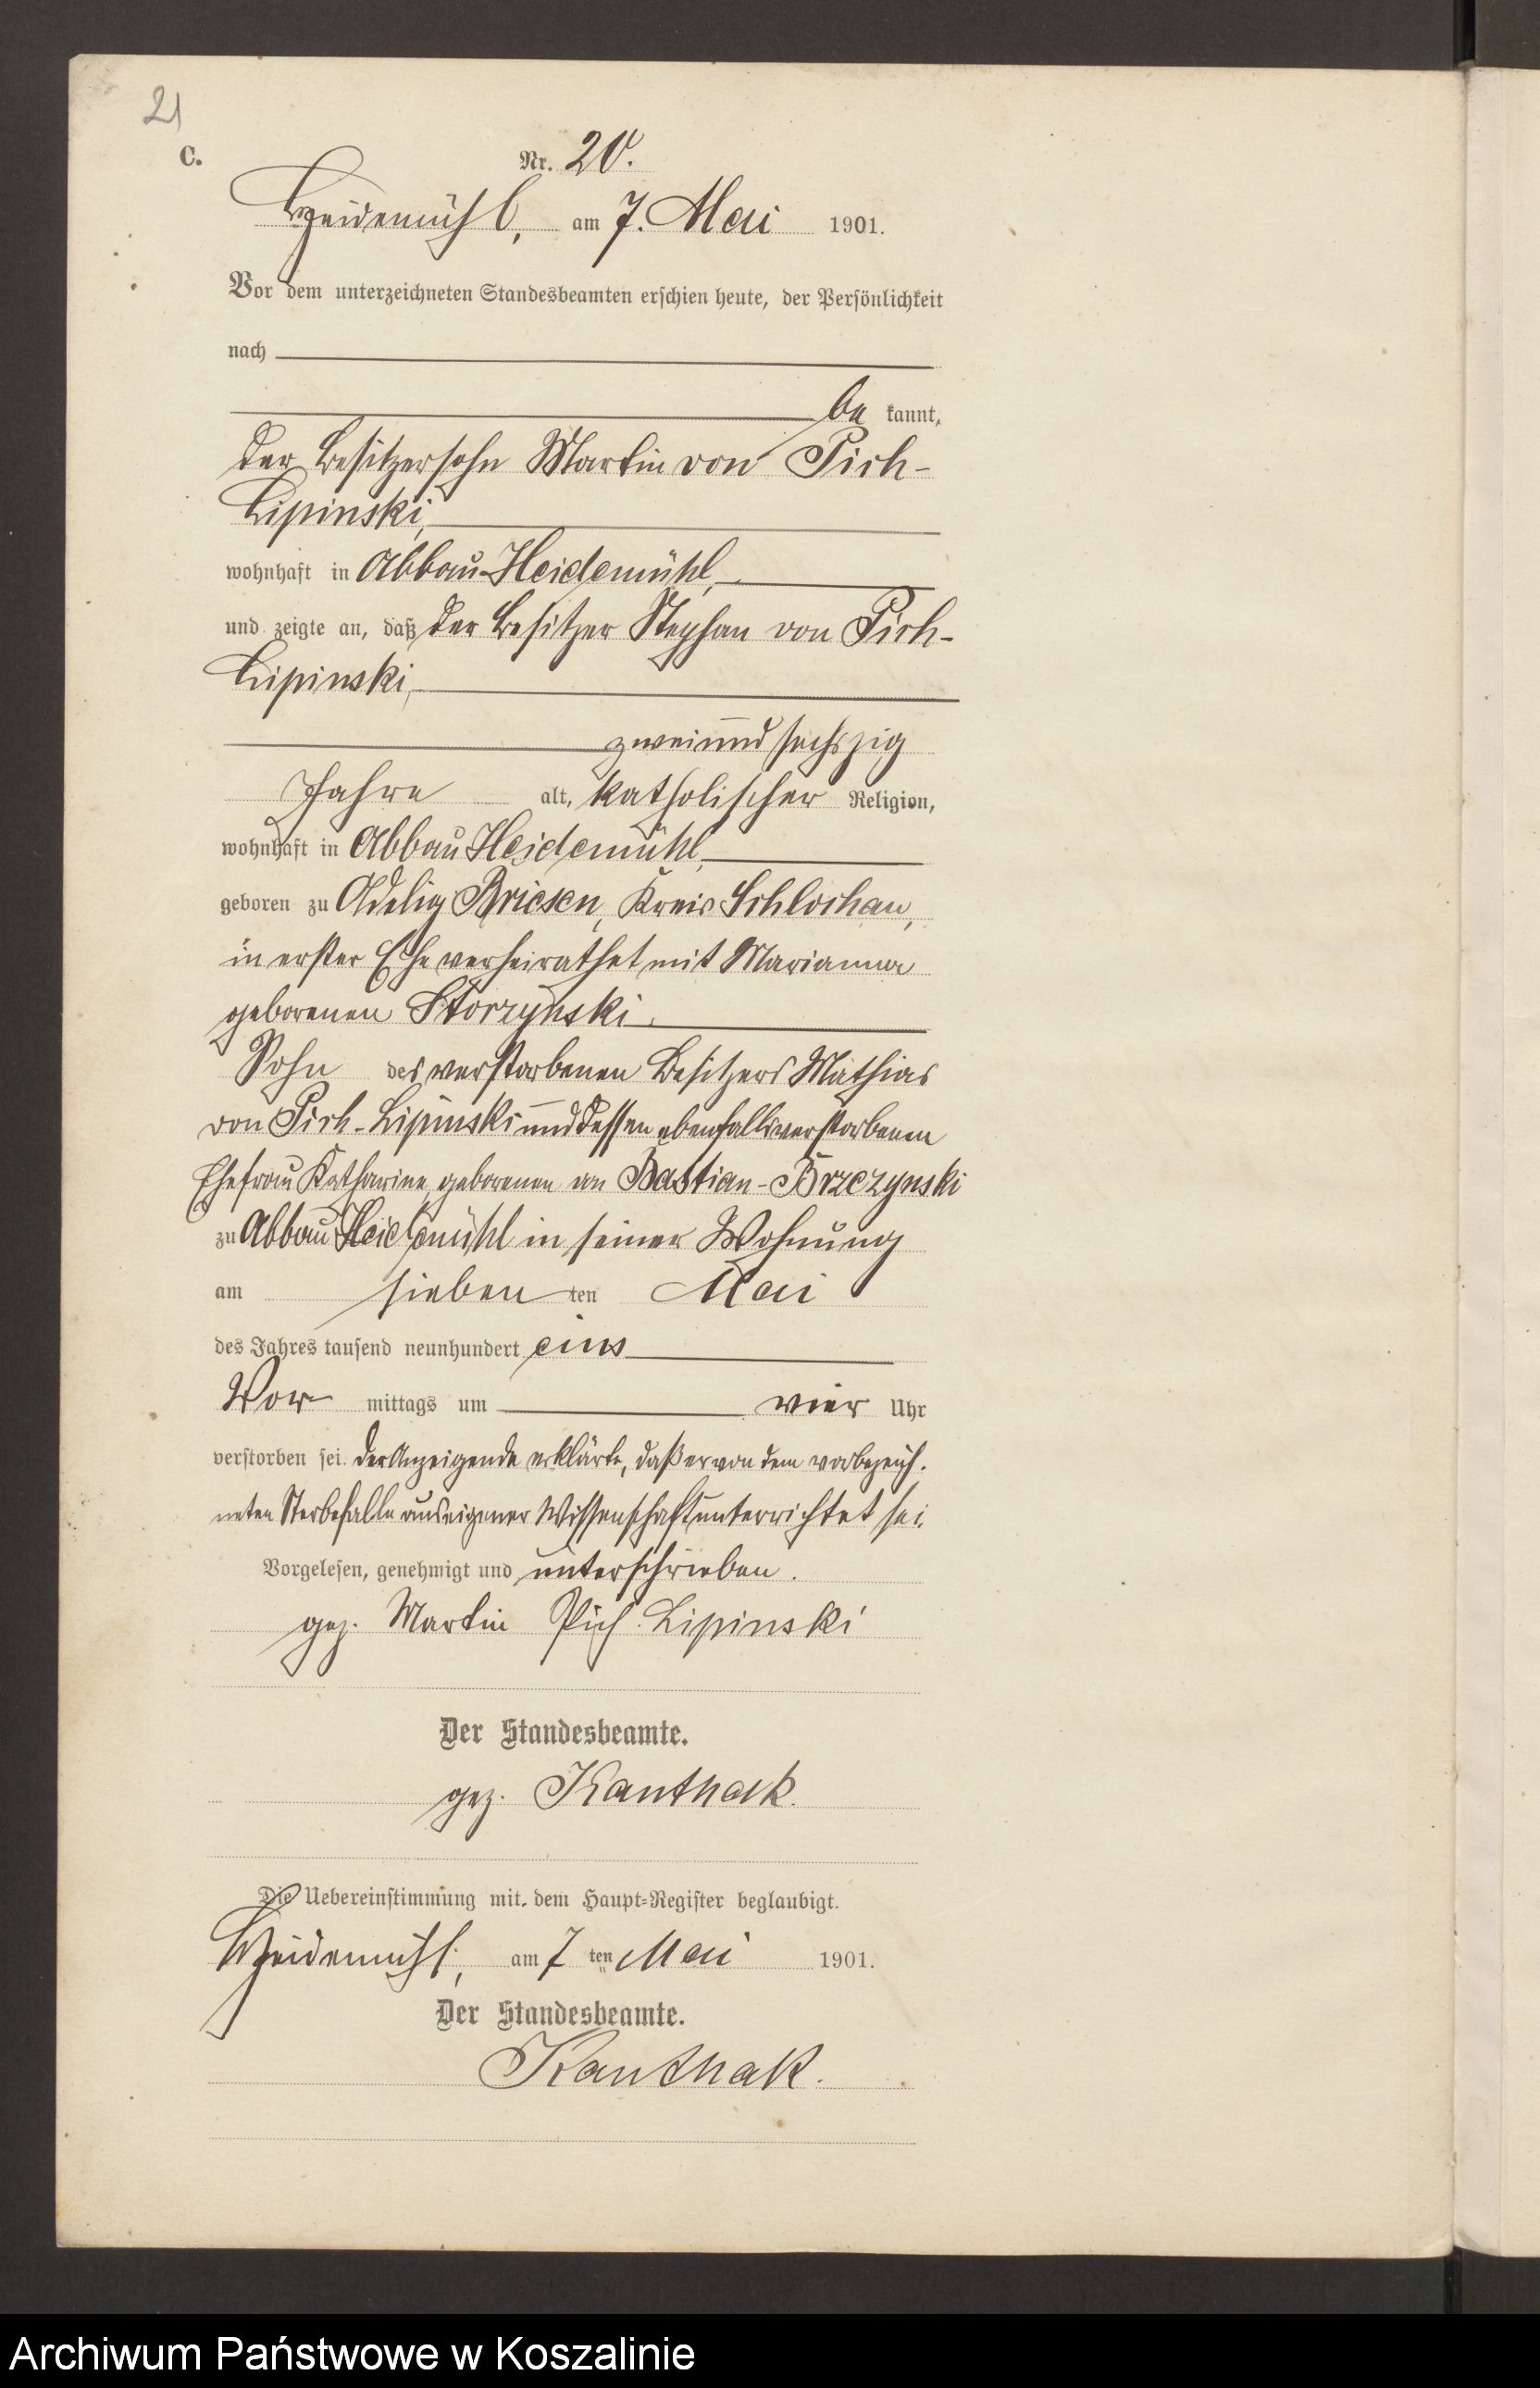 21
C.
Nr. 20.
Heidemühl, am 7. Mai 1901.
Vor dem unterzeichneten Standesbeamten erschien heute, der Persönlichkeit
nach
be kannt,
der Besitzersohn Martin von Pich-
Lipinski,
wohnhaft in Abbau Heidemühl,
und zeigte an, daß der Besitzer Stephan von Pich-
Lipinski,
zweiundsechszig
Jahre alt, katholischer Religion,
wohnhaft in Abbau Heidemühl,
geboren zu Adelig Briesen, Kreis Schlochau,
in erster Ehe verheirathet mit Marianna
geborenen Storzynski.
Sohn des verstorbenen Besitzers Mathias
von Pich-Lipinski und dessen ebenfalls verstorbenen
Ehefrau Katharine, geborenen von Bastian-Brzezynski
zu Abbau Heidemühl in seiner Wohnung
am sieben ten Mai
des Jahres tausend neunhundert eins
Vor mittags um vier Uhr
verstorben sei. Der Anzeigende erklärte, daß er von dem vorbezeich.
neten Sterbefalle aus eigener Wissenschaft unterrichtet sei.
Vorgelesen, genehmigt und unterschrieben.
gez. Martin Pich. Lipinski
Der Standesbeamte.
gez. Kanthak.
Die Uebereinstimmung mit dem Haupt-Register beglaubigt.
Heidemühl, am 7 ten Mai 1901.
Der Standesbeamte.
Kanthak.
Archiwum Państwowe w Koszalinie